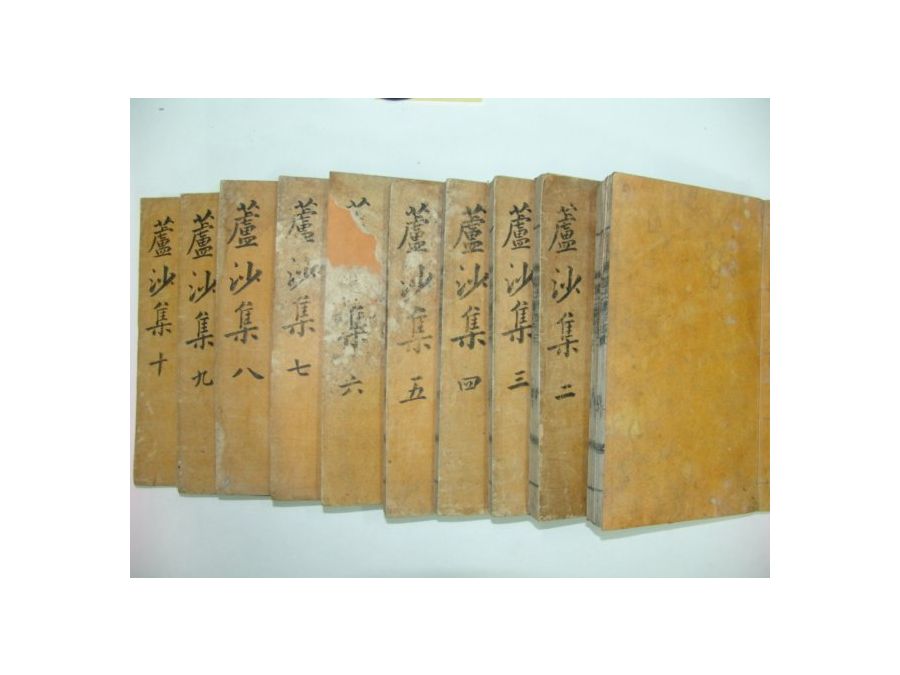 蘆沙集 二
蘆沙集 三
蘆沙集 四
蘆沙集 五
集 六
蘆沙集 七
蘆沙集 八
蘆沙集 九
蘆沙集 十